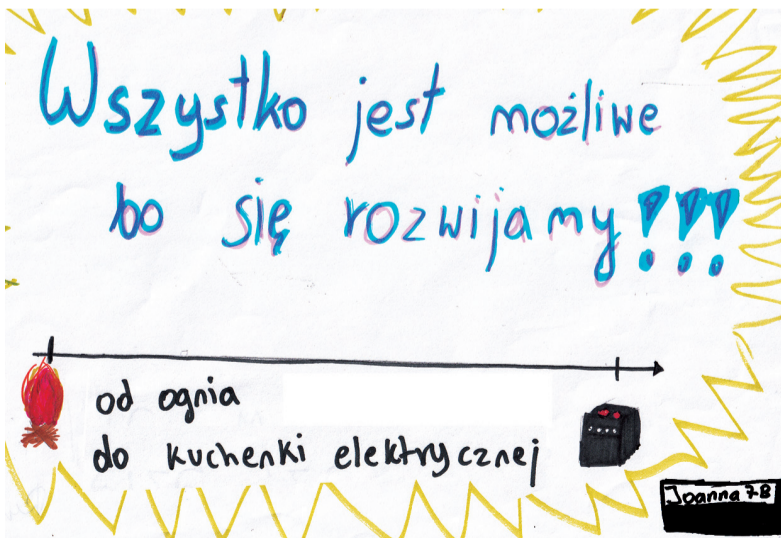 Wszystko jest możliwe
bo się rozwijamy!!!
od ognia
do kuchenki elektrycznej
Joanna 7B